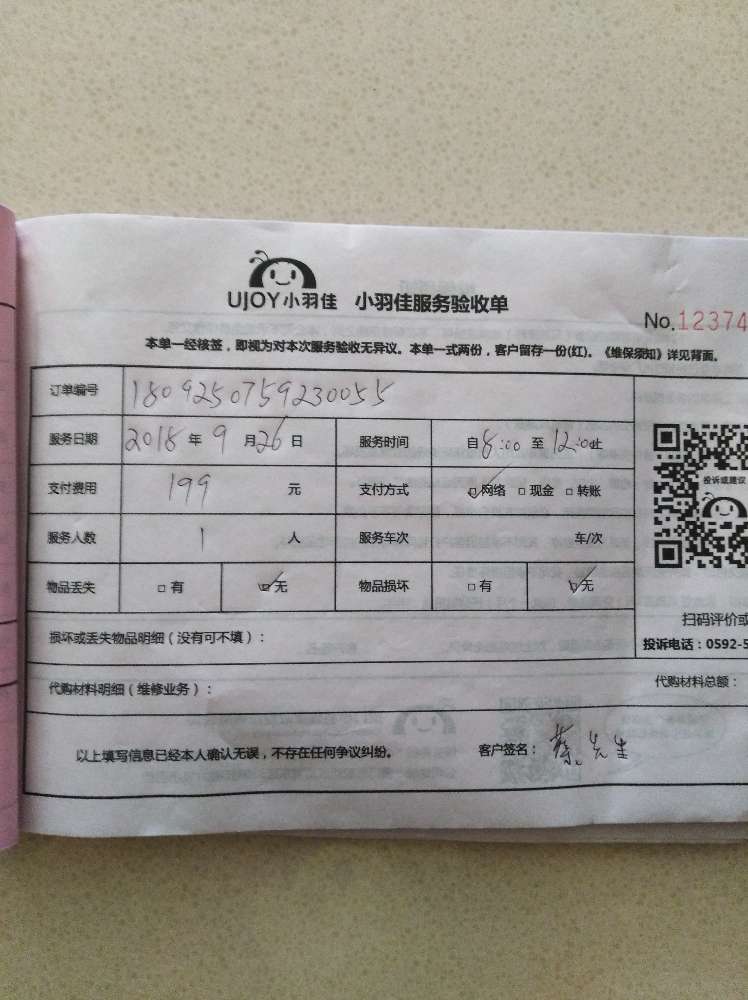 UJOY小羽佳 小羽佳服务验收单
No.12374
本单一经核签，即视为对本次服务验收无异议。本单一式两份，客户留存一份(红)。《维保须知》详见背面。
订单编号 1809250759230055
服务日期 2018年9月26日 服务时间 自8:00至12:00止
支付费用 199元 支付方式 ☑网络 □现金 □转账
服务人数 1人 服务车次 车/次
物品丢失 □有 ☑无 物品损坏 □有 ☑无
投诉或建议
扫码评价或
投诉电话：0592-5
损坏或丢失物品明细（没有可不填）：
代购材料明细（维修业务）： 代购材料总额：
以上填写信息已经本人确认无误，不存在任何争议纠纷。 客户签名：蔡先生